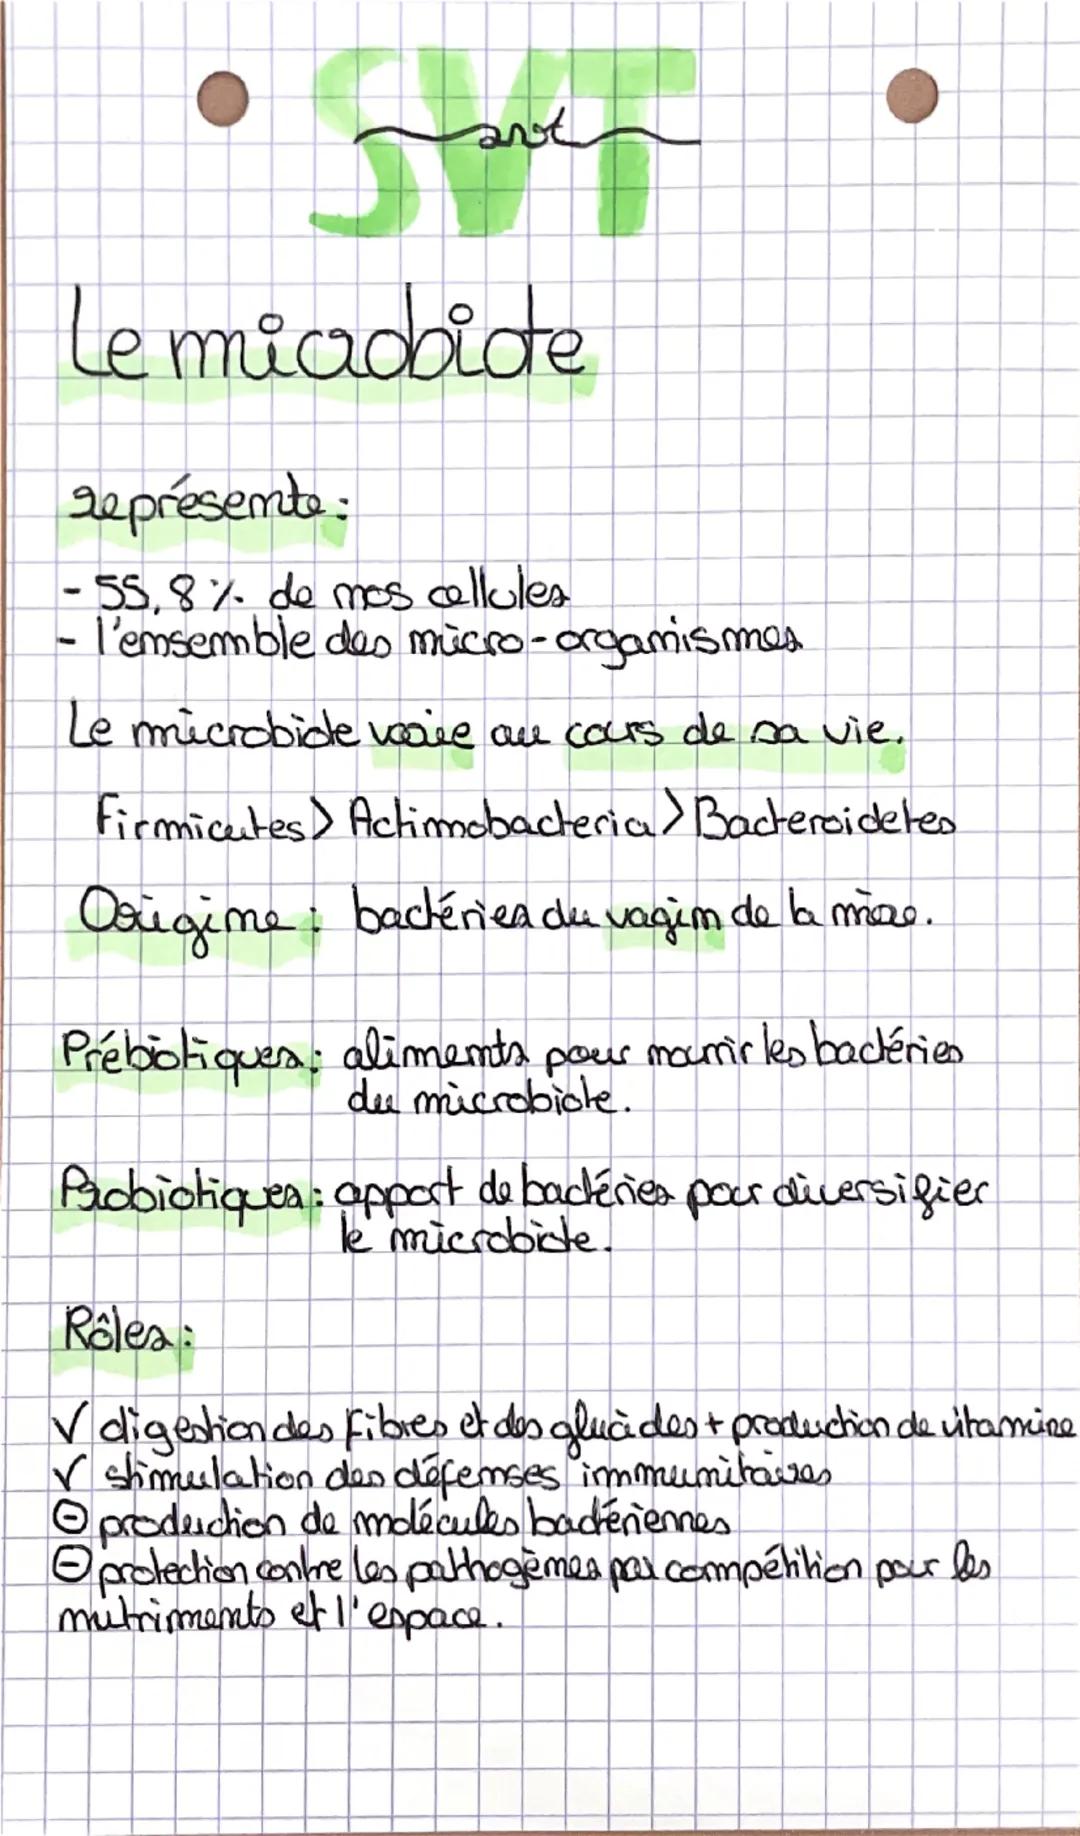 SVT
svt
Le microbiote
représente :
- 55,8 % de nos cellules
- l'ensemble des micro-organismes
Le microbiote varie au cours de sa vie.
Firmicutes > Actinobacteria > Bacteroidetes
Origine : bactéries du vagin de la mère.
Prébiotiques : aliments pour nourrir les bactéries
du microbiote.
Probiotiques : apport de bactéries pour diversifier
le microbiote.
Rôles :
√ digestion des fibres et des glucides + production de vitamine
√ stimulation des défenses immunitaires
⊖ production de molécules bactériennes
⊖ protection contre les pathogènes par compétition pour les
nutriments et l'espace.